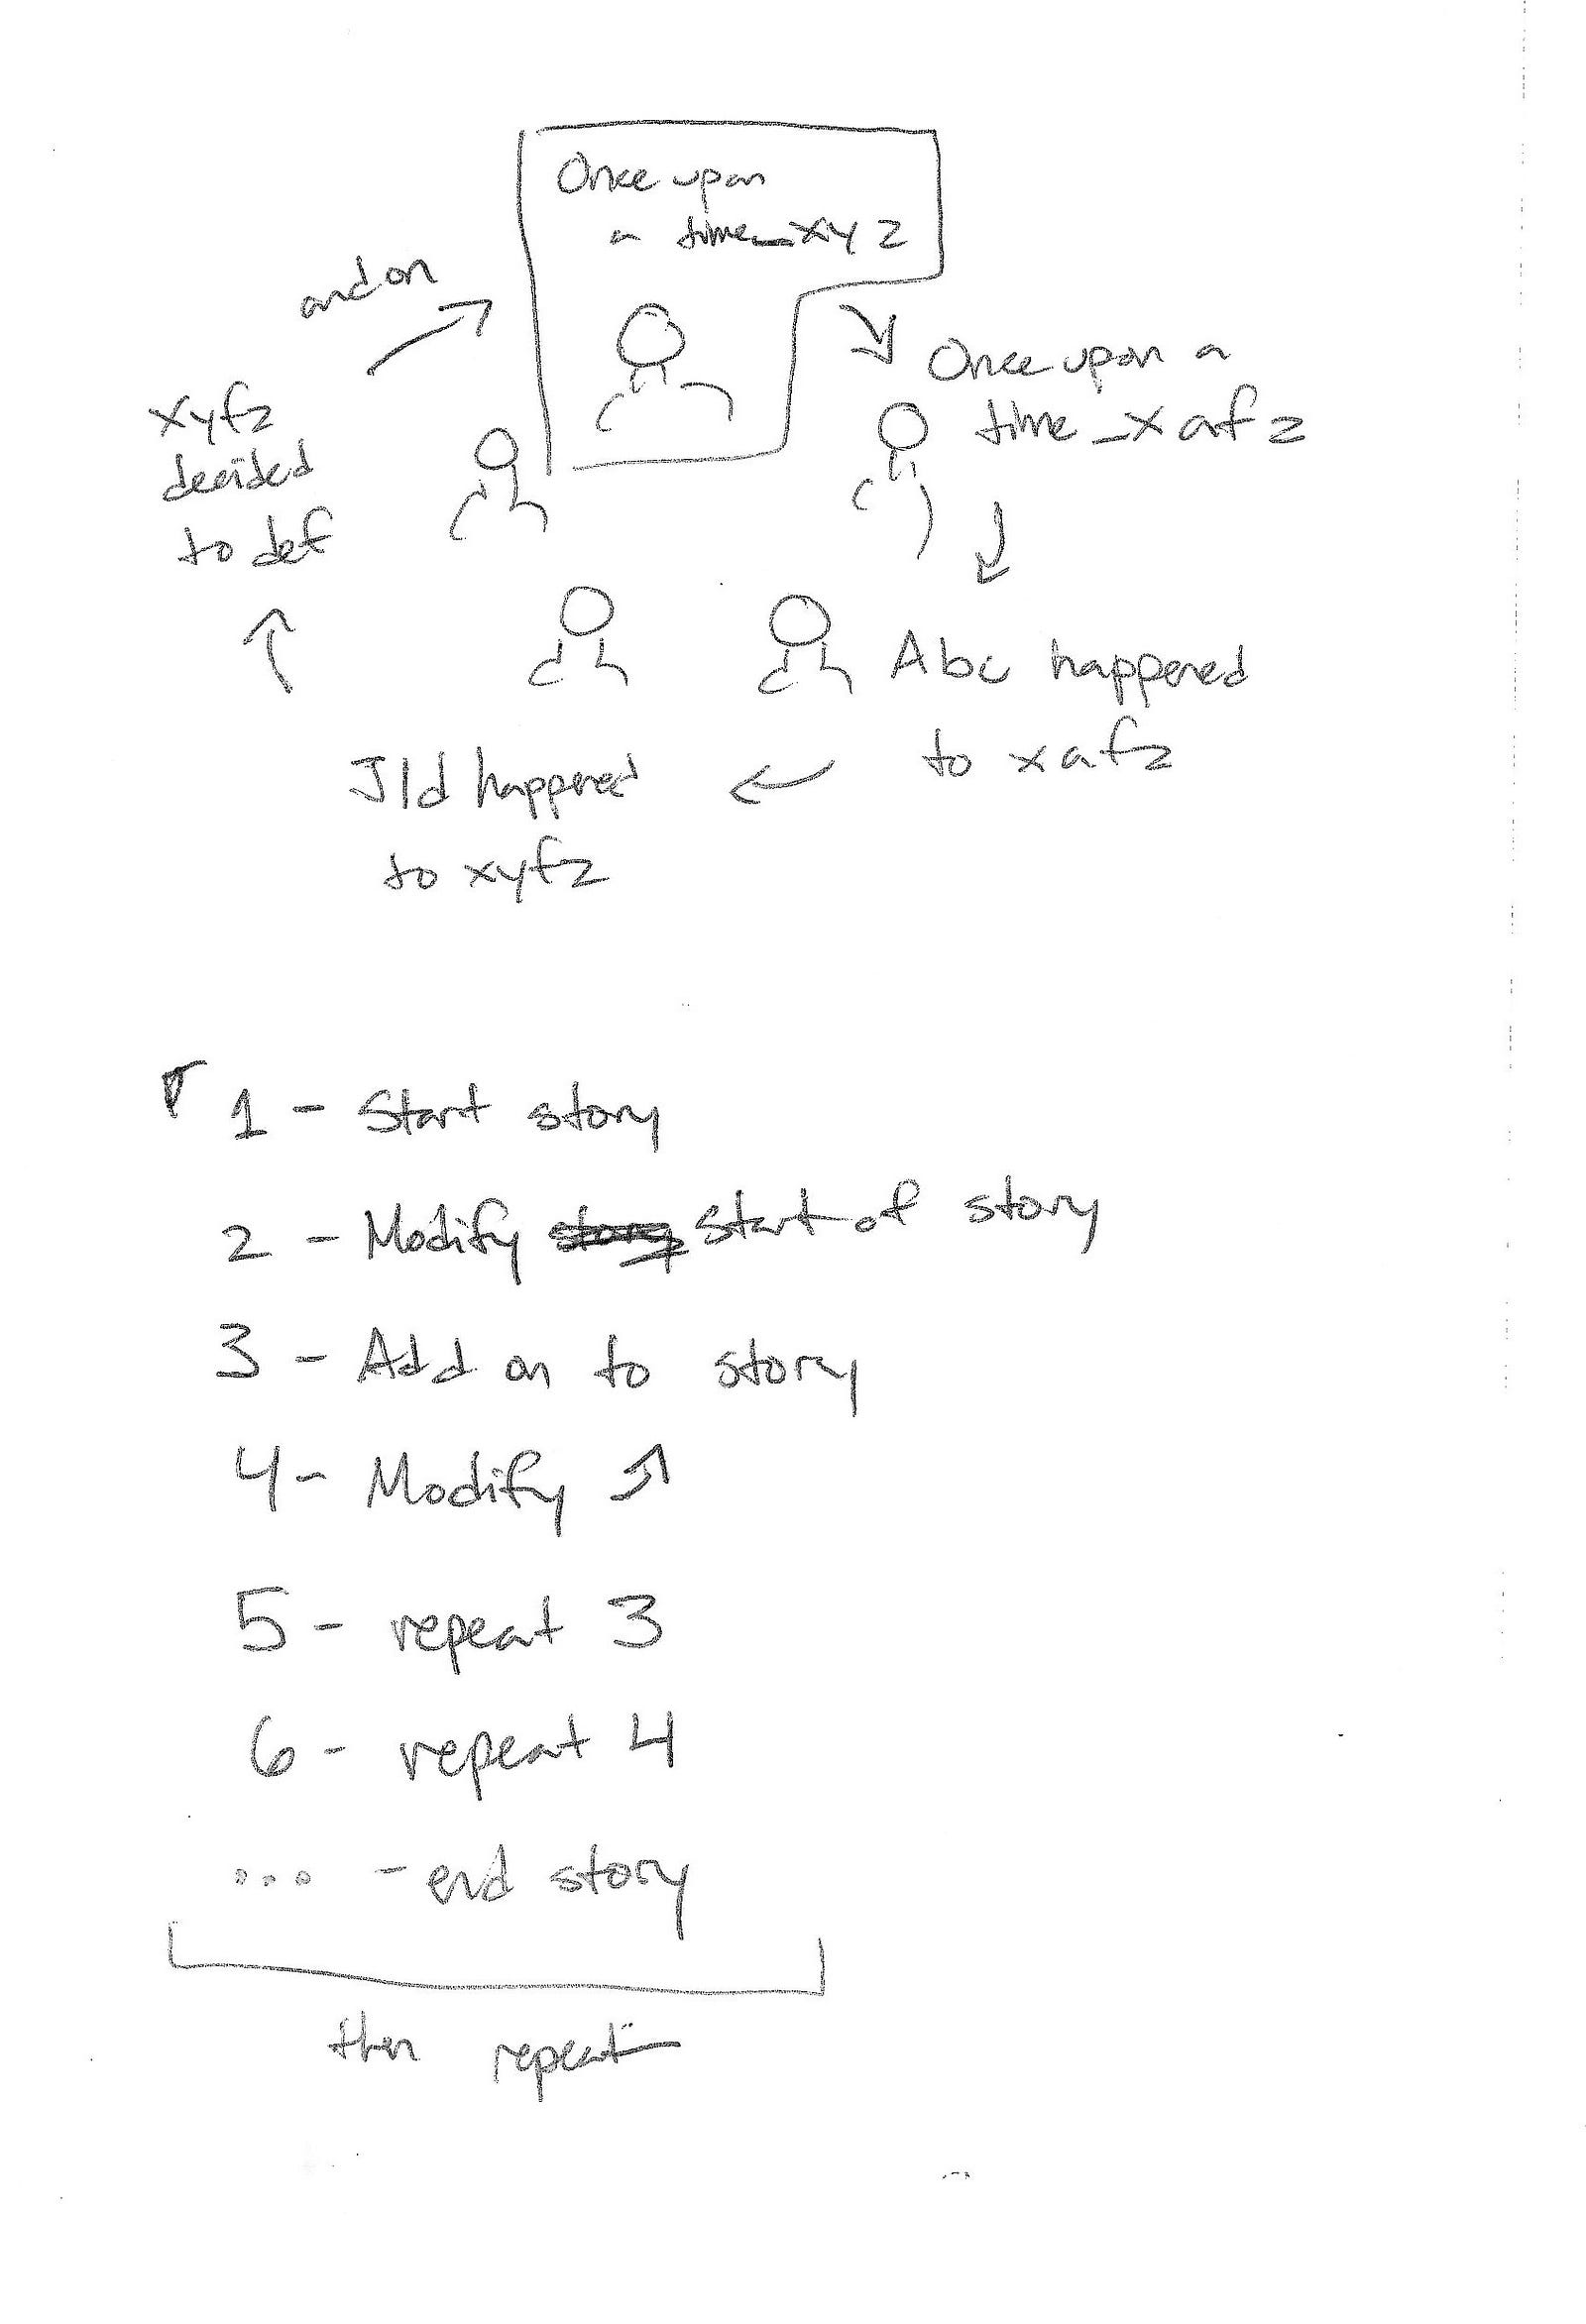 Once upon
a time_xyz
and on
Once upon a
time_xafz
xyfz
decided
to def
Abc happened
to xafz
Jld happened
to xyfz
1 - Start story
2 - Modify story start of story
3 - Add on to story
4 - Modify
5 - repeat 3
6 - repeat 4
... - end story
then repeat